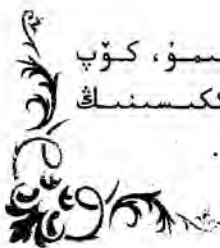 ىمۇ، كۆپ
ككىسىنىڭ
.